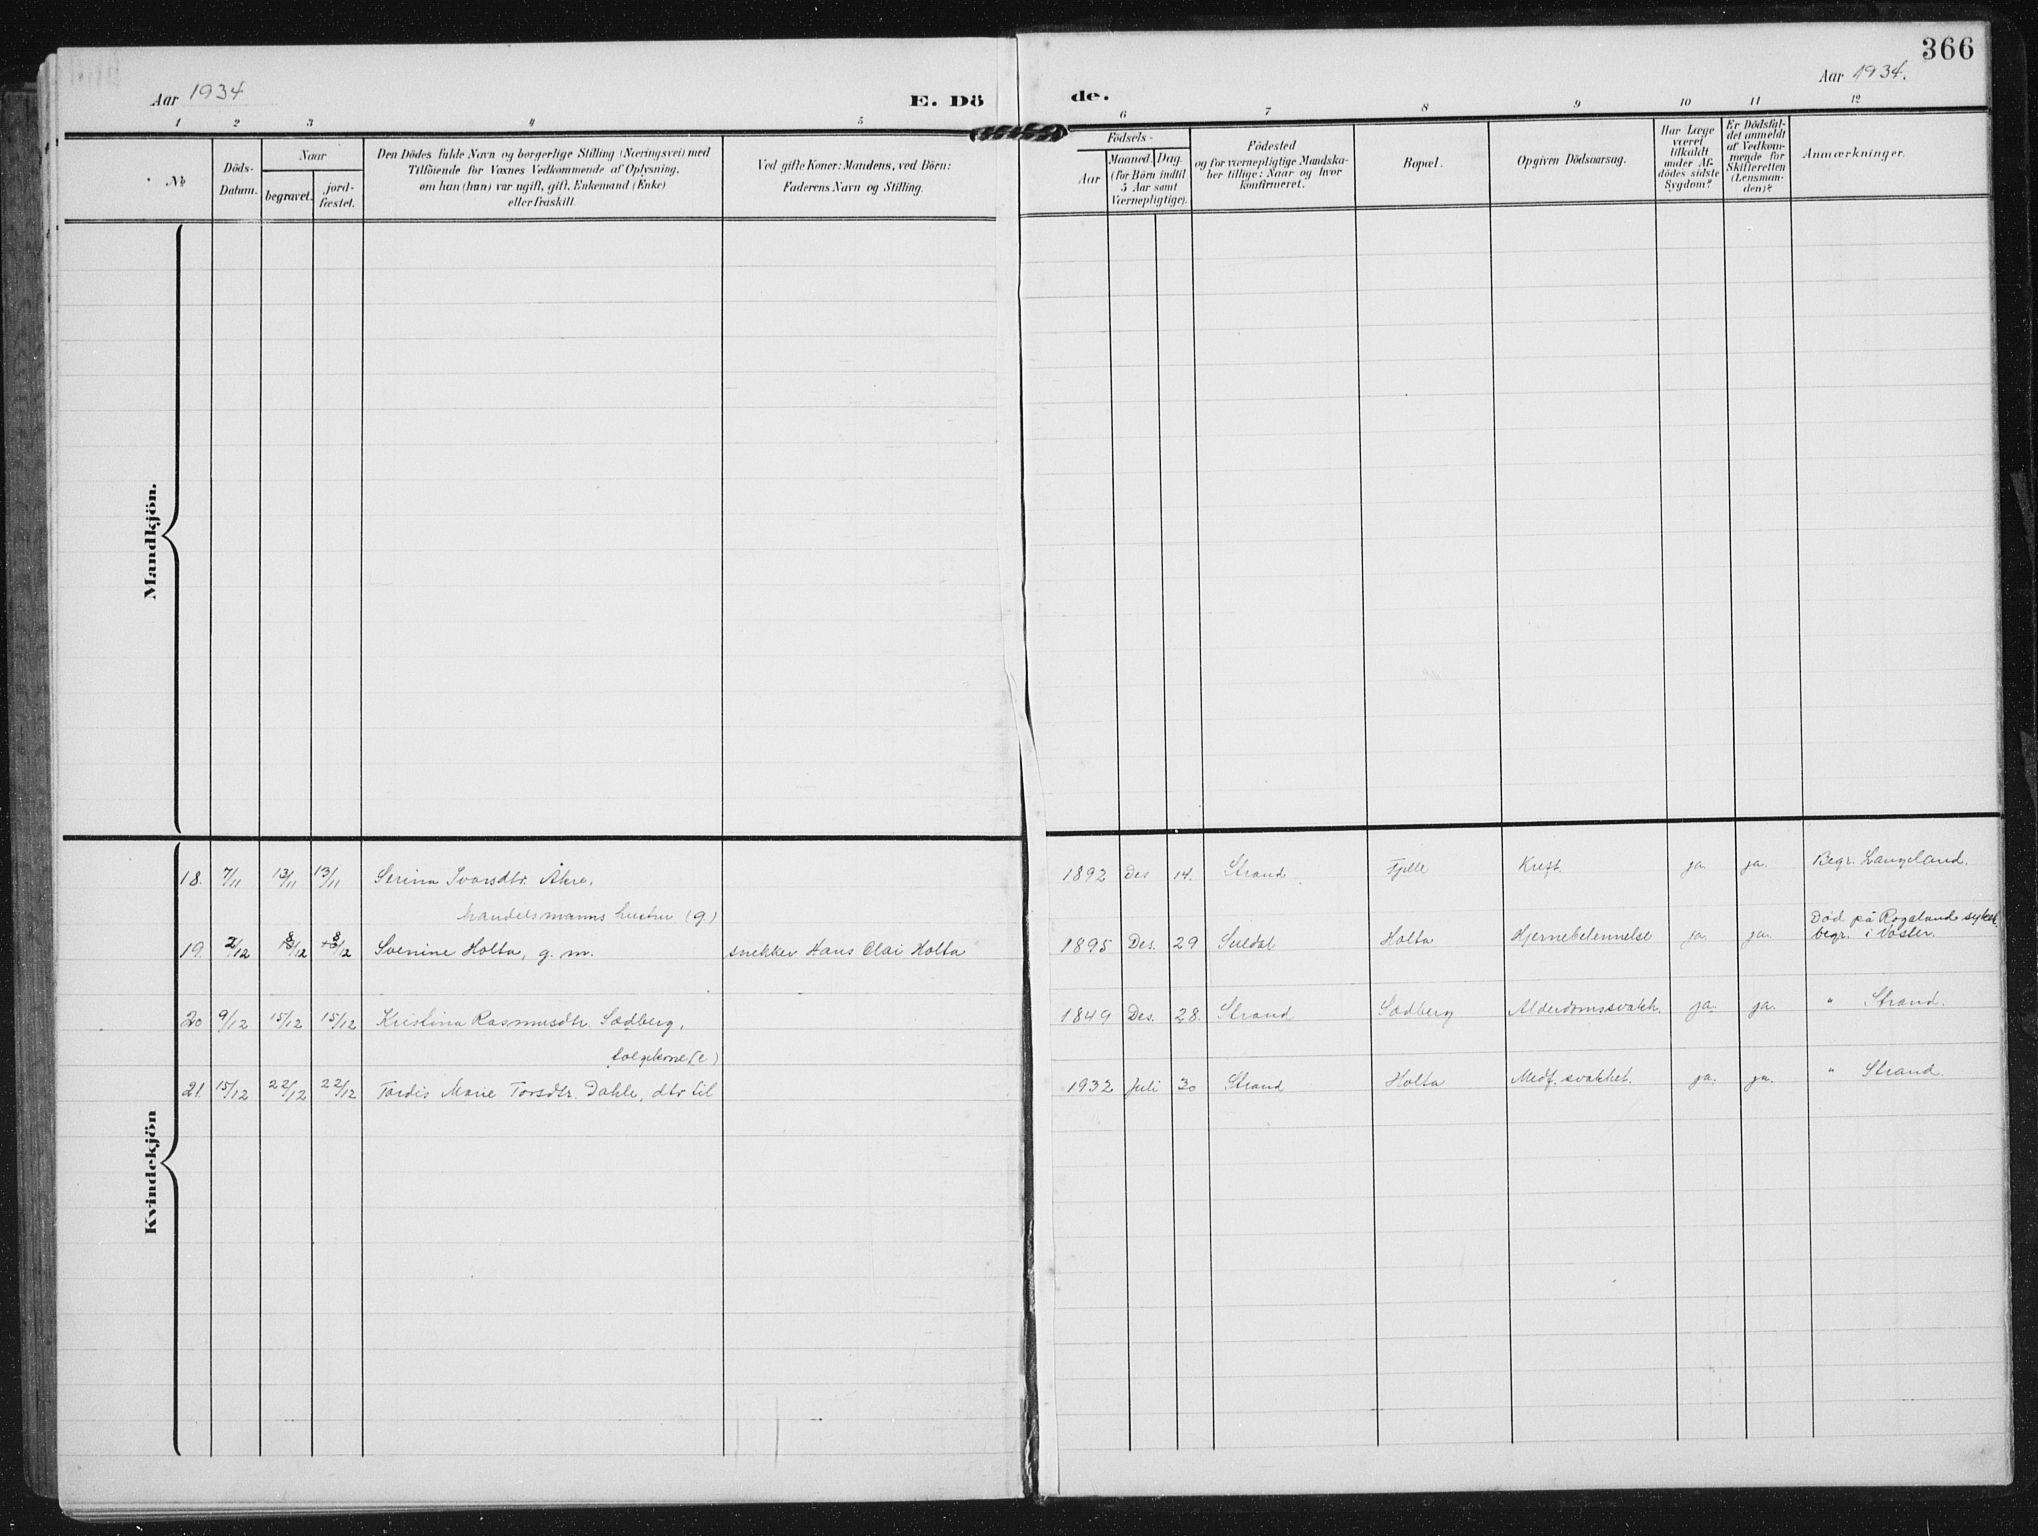 366
Aar 1934
E. Dö
de.
Aar 1934.
1
2
3
4
5
6
7
8
9
10
11
12
No
Döds-
Datum.
Naar
begravet.
jord-
fæstet.
Den Dödes fulde Navn og borgerlige Stilling (Næringsvei) med
Tilföiende for Voxnes Vedkommende af Oplysning,
om han (hun) var ugift, gift, Enkemand (Enke)
eller fraskilt.
Ved gifte Koner: Mandens, ved Börn:
Faderens Navn og Stilling.
Födsels-
Aar
Maaned. Dag.
(for Börn indtil
5 Aar samt
Værnepligtige).
Födested
og for værnepligtige Mandska-
ber tillige: Naar og hvor
konfirmeret.
Bopæl.
Opgiven Dödsaarsag.
Har Læge
været
tilkaldt
under Af-
dödes sidste
Sygdom?
Er Dödsfal-
det anmeldt
af Vedkom-
mende for
Skifteretten
(Lensman-
den)?
Anmærkninger.
Mandkjön.
Kvindekjön
18. 7/11 13/11 13/11 Serina Ivarsdtr. Åkre, 1892 Des 14. Strand Fjelle Kreft. ja. ja. Begr. Langeland.
handelsmanns hustru (g)
Død på Rogaland sykeh.
19. 2/12 8/12 8/12 Svenine Holta, g. m. snekker Hans Olai Holta 1895 Des. 29 Suldal Holta Hjernebetennelse ja. ja. begr. i Voster.
20 9/12 15/12 15/12 Kristina Rasmusdtr. Sædberg, 1849 Des. 28. Strand Sædberg Alderdomssvakh. ja. ja. " Strand.
folgekone (e)
21. 15/12 22/12 22/12 Tordis Marie Torsdtr. Dahle, dtr til 1932 Juli 30 Strand Holta Medf. svakhet. ja. ja. " Strand.